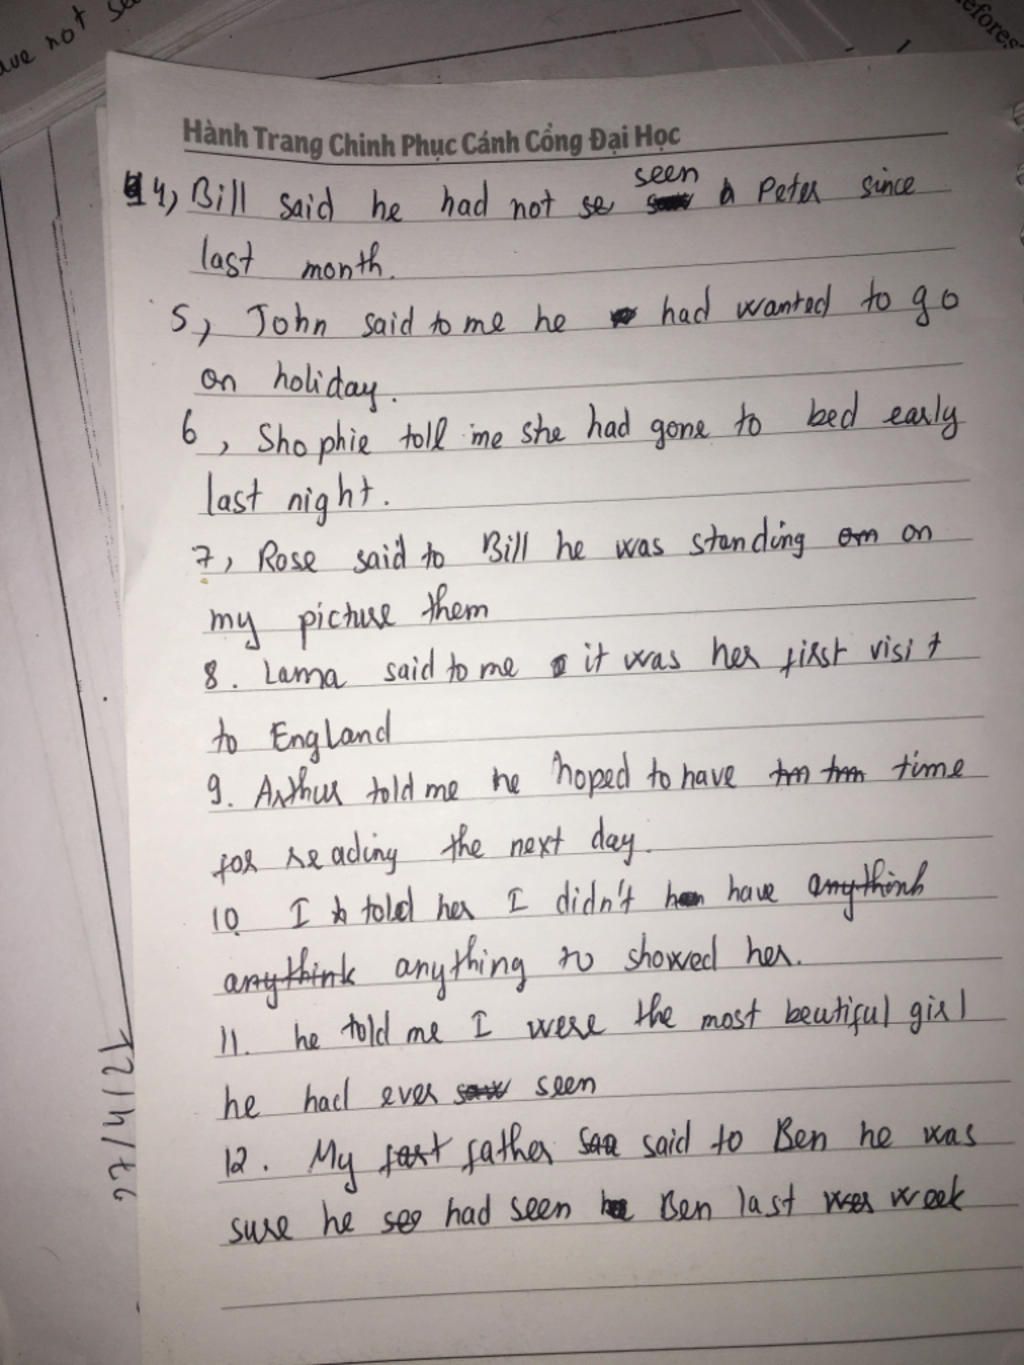 ave not se
efores
Hành Trang Chinh Phục Cánh Cổng Đại Học
4, Bill said he had not se seen Peter since
last month.
5, John said to me he had wanted to go
on holiday.
6, Shophie toll me she had gone to bed early
last night.
7, Rose said to Bill he was standing om on
my picture them
8. Lama said to me it was her first visit
to England
9. Arthur told me he hoped to have tm tm time
for reading the next day.
10. I told her I didn't have anythink
anythink anything to showed her.
11. he told me I were the most beutiful girl
he had ever saw seen
12. My fast father said to Ben he was
sure he see had seen Ben last week
27/4/21